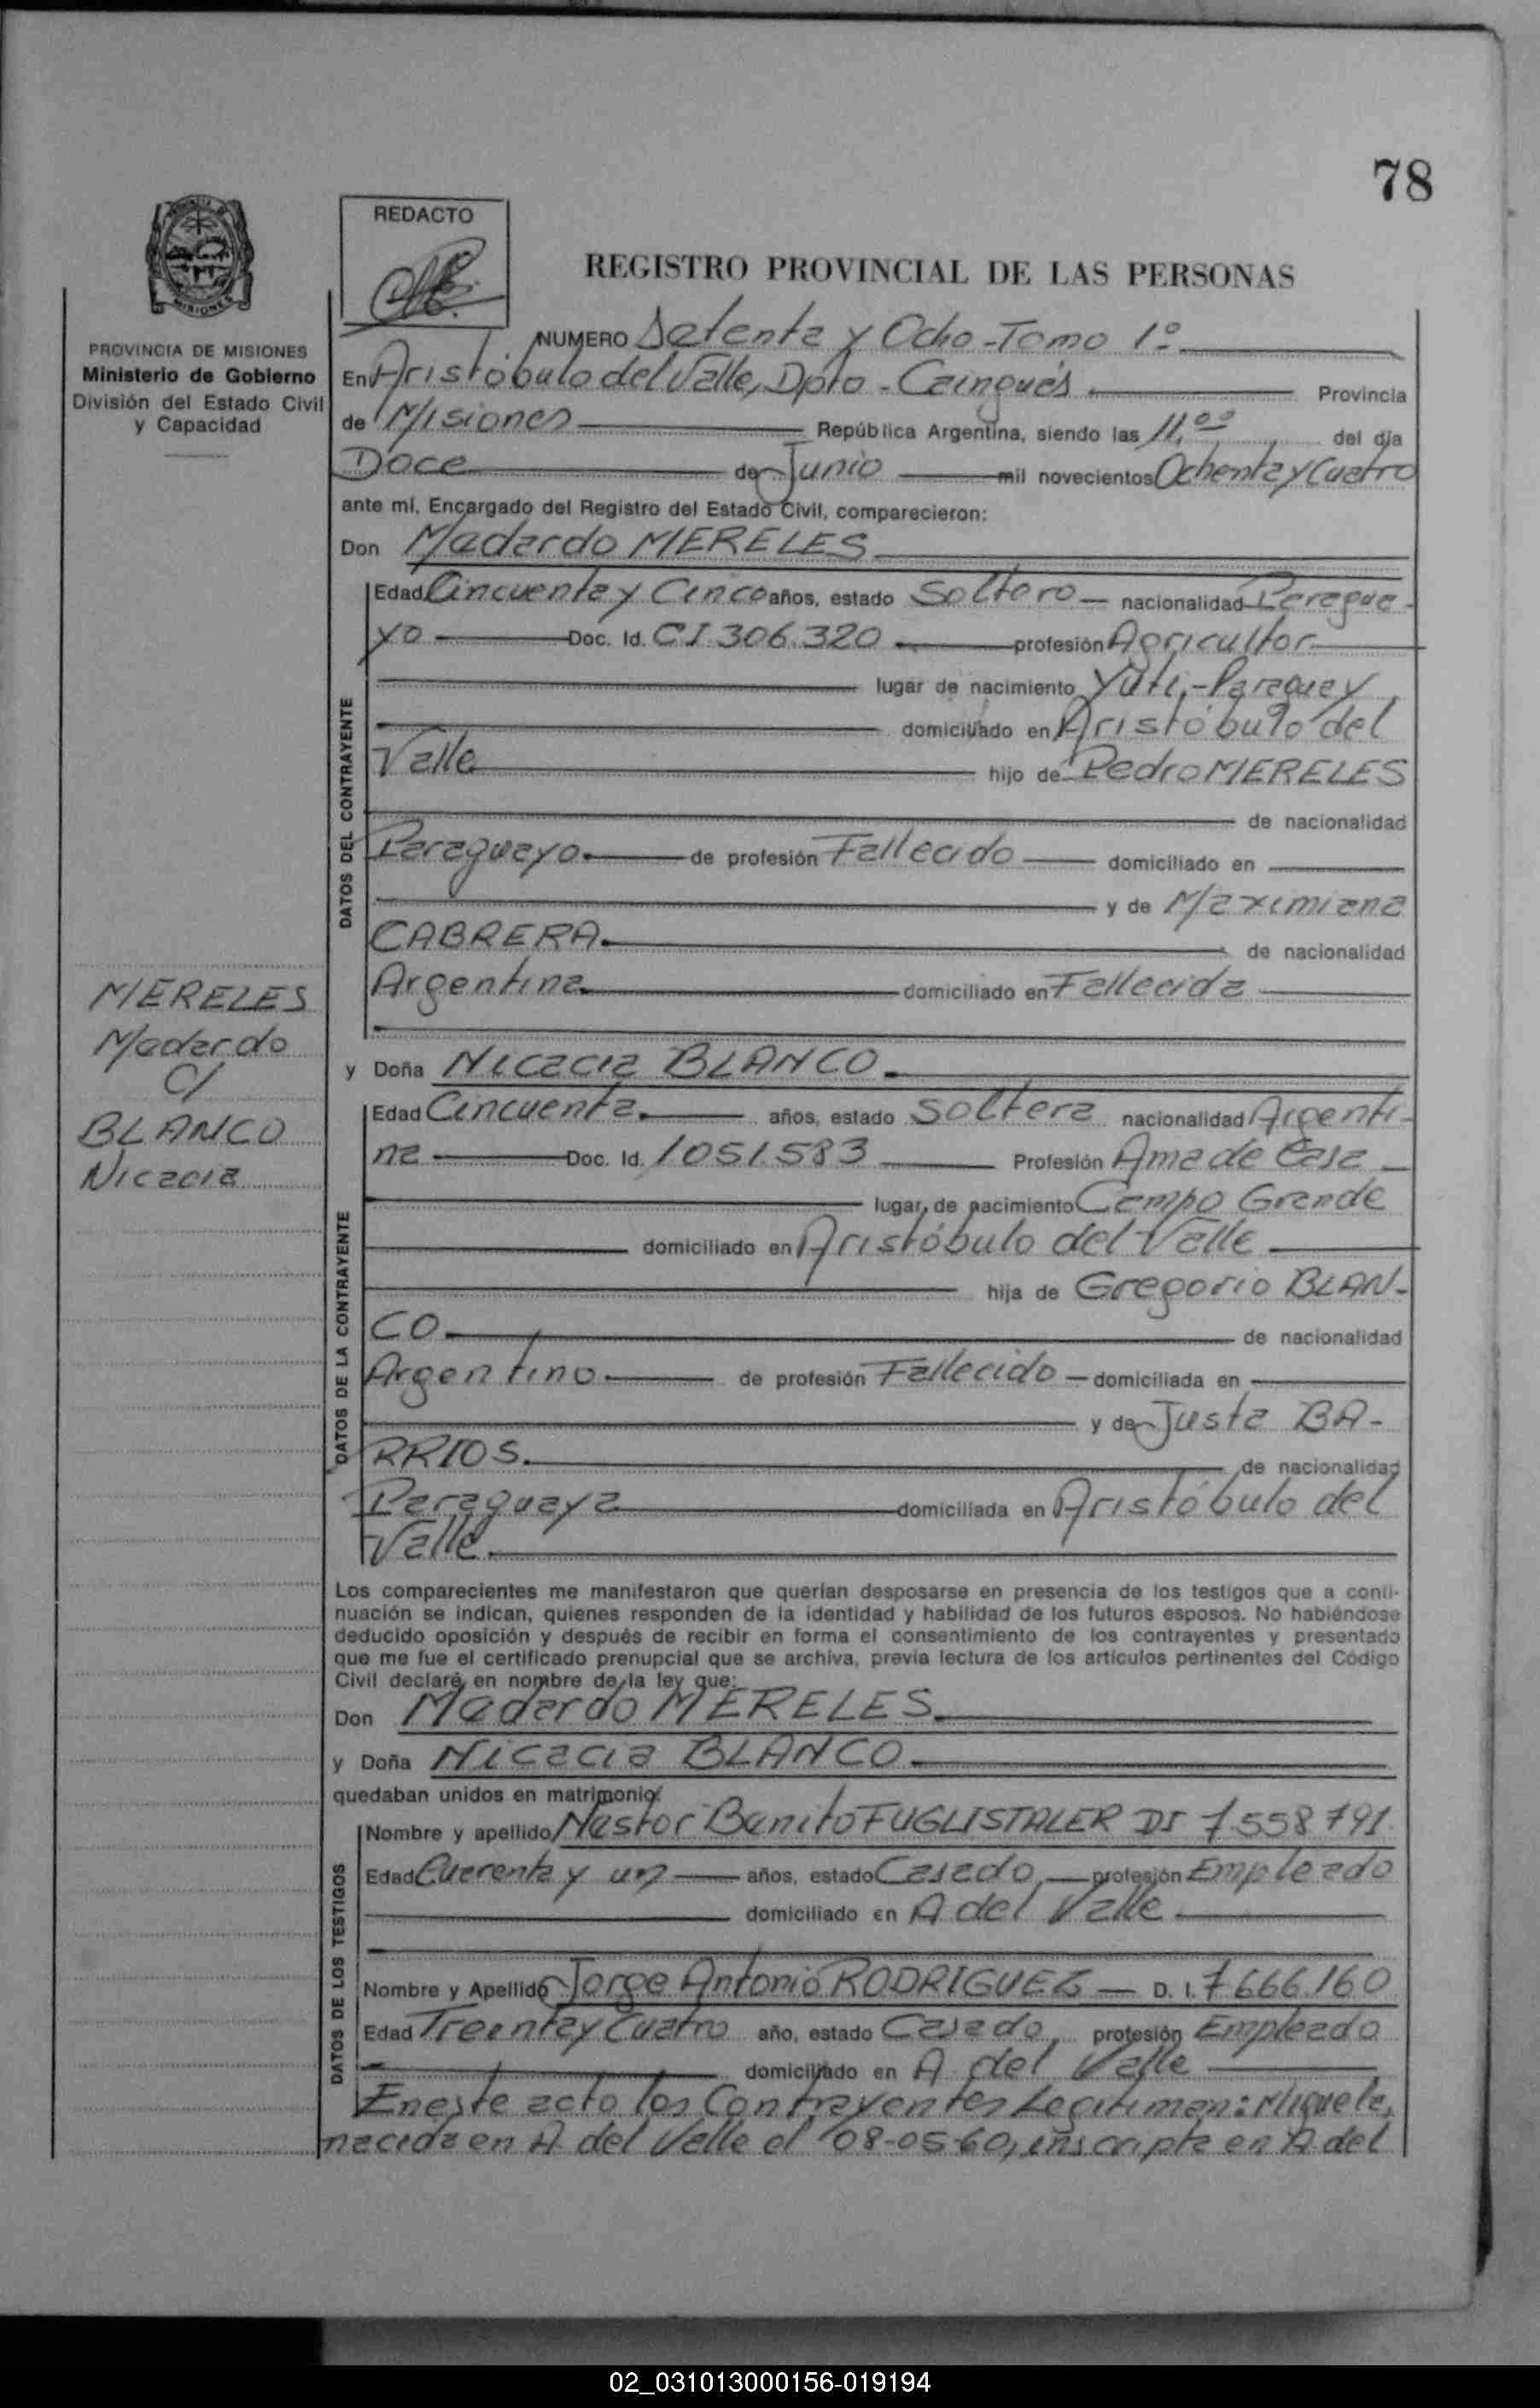 78
REDACTO
REGISTRO PROVINCIAL DE LAS PERSONAS
MISIONES
PROVINCIA DE MISIONES
Ministerio de Gobierno
División del Estado Civil
y Capacidad
NUMERO Setenta y Ocho - Tomo 1º
En Aristóbulo del Valle, Dpto - Cainguás Provincia
de Misiones República Argentina, siendo las 11,00 del día
Doce de Junio mil novecientos Ochenta y Cuatro
ante mí, Encargado del Registro del Estado Civil, comparecieron:
Don Madardo MERELES
DATOS DEL CONTRAYENTE
Edad Cincuenta y Cinco años, estado Soltero - nacionalidad Paragua-
yo Doc. Id. CI 306.320 profesión Agricultor
lugar de nacimiento Yuti, - Paraguay
domiciliado en Aristóbulo del
Valle hijo de Pedro MERELES
de nacionalidad
Paraguayo. de profesión Fallecido domiciliado en
y de Maximiana
CABRERA. de nacionalidad
Argentina domiciliado en Fallecida
MERELES
Madardo
C/
BLANCO
Nicacia
y Doña Nicacia BLANCO.
DATOS DE LA CONTRAYENTE
Edad Cincuenta. años, estado Soltera nacionalidad Argenti-
na Doc. Id. 1051.583 Profesión Ama de Casa
lugar de nacimiento Campo Grande
domiciliado en Aristóbulo del Valle
hija de Gregorio BLAN-
CO. de nacionalidad
Argentino. de profesión Fallecido domiciliada en
y de Justa BA-
RRIOS. de nacionalidad
Paraguaya domiciliada en Aristóbulo del
Valle.
Los comparecientes me manifestaron que querían desposarse en presencia de los testigos que a conti-
nuación se indican, quienes responden de la identidad y habilidad de los futuros esposos. No habiéndose
deducido oposición y después de recibir en forma el consentimiento de los contrayentes y presentado
que me fue el certificado prenupcial que se archiva, previa lectura de los artículos pertinentes del Código
Civil declaré, en nombre de la ley que:
Don Madardo MERELES.
y Doña Nicacia BLANCO.
quedaban unidos en matrimonio.
DATOS DE LOS TESTIGOS
Nombre y apellido Nestor Benito FUGLISTALER DI 7.558.791
Edad Cuarenta y un años, estado Casado profesión Empleado
domiciliado en A del Valle
Nombre y Apellido Jorge Antonio RODRIGUEZ D. I. 7.666.160
Edad Treinta y Cuatro año, estado Casado, profesión Empleado
domiciliado en A. del Valle
En este acto los Contrayentes Legitiman: Miguela,
nacida en A. del Valle el 08-05-60, inscripta en A. del
02_031013000156-019194